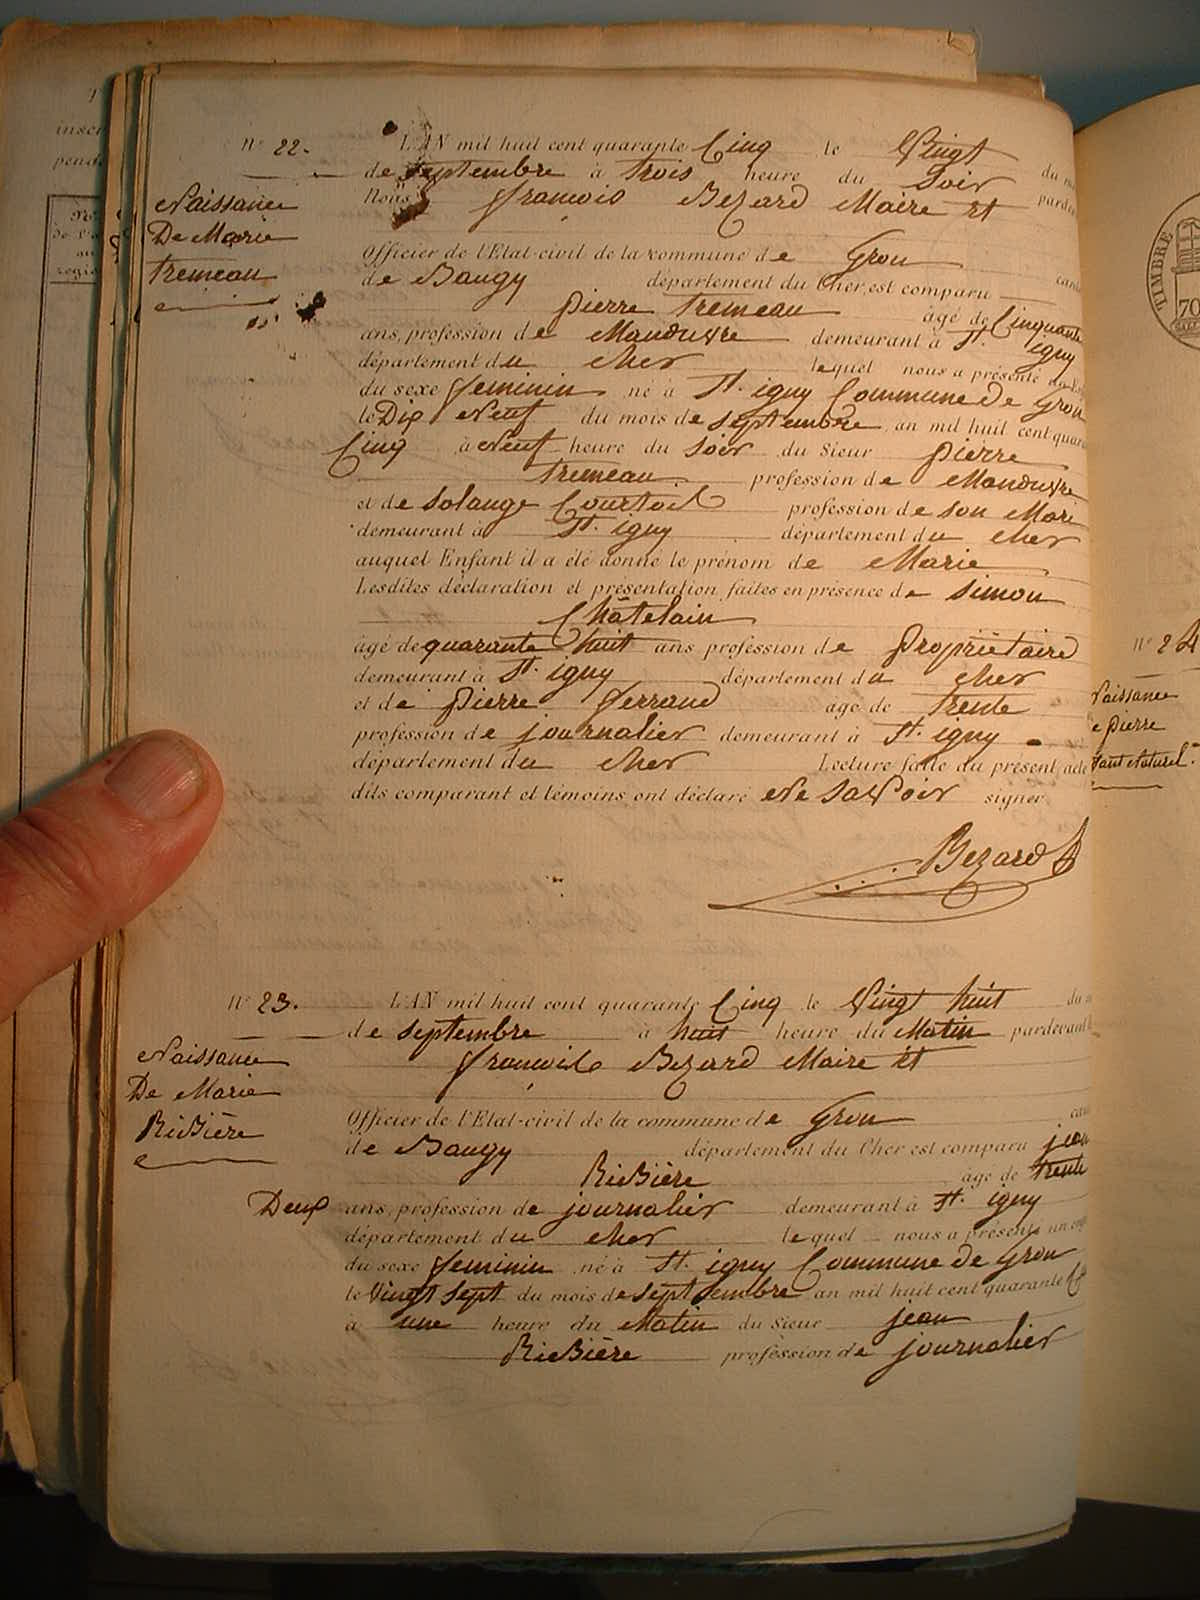 N° 22.
Naissance
De Marie
tremeau
L'AN mil huit cent quarante Cinq le Vingt du
de septembre à trois heure du Soir
Nous François Bezard Maire et
Officier de l'Etat-civil de la commune de Gron
de Baugy département du Cher, est comparu
pierre tremeau âgé de Cinquante
ans, profession de Manœuvre demeurant à St. igny
département du cher lequel nous a présenté
du sexe feminin né à St. igny Commune de Gron
le Dix Neuf du mois de septembre an mil huit cent
Cinq à Neuf heure du soir du Sieur pierre
tremeau profession de Manœuvre
et de solange Courtois profession de son Mari
demeurant à St. igny département du cher
auquel Enfant il a été donné le prénom de Marie
Lesdites déclaration et présentation faites en présence de simon
Châtelain
âgé de quarante huit ans profession de propriètaire
demeurant à St. igny département du cher
et de pierre ferrand âgé de trente
profession de journalier demeurant à St. igny
département du cher Lecture faite du présent acte
dits comparant et témoins ont déclaré Ne savoir signer
Bezard
N° 23.
Naissance
De Marie
Rivière
L'AN mil huit cent quarante Cinq le Vingt huit du
de septembre à huit heure du Matin pardevant
François Bezard Maire et
Officier de l'Etat-civil de la commune de Gron
de Baugy département du Cher est comparu jean
Rivière âgé de trente
Deux ans, profession de journalier demeurant à St. igny
département du cher lequel nous a présenté un
du sexe feminin né à St. igny Commune de Gron
le Vingt sept du mois de septembre an mil huit cent quarante
à une heure du Matin du Sieur jean
Rivière profession de journalier
TIMBRE
70
N° 24
Naissance
de pierre
Naturel